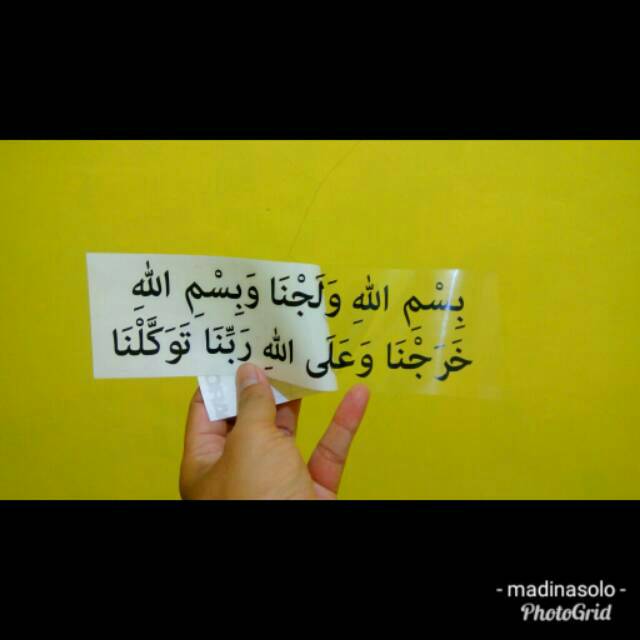 بِسْمِ اللهِ وَلَجْنَا وَبِسْمِ اللهِ
خَرَجْنَا وَعَلَى اللهِ رَبِّنَا تَوَكَّلْنَا
- madinasolo -
PhotoGrid